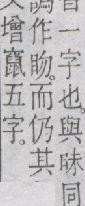 一字也。與昧同
譌作昒。而仍其
增竄五字。